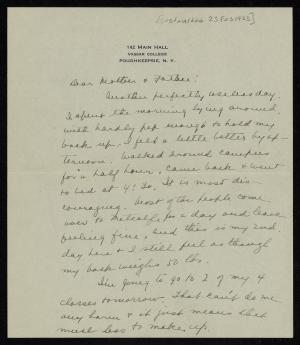 [postmarked 25 Feb 1925]
142 MAIN HALL
VASSAR COLLEGE
POUGHKEEPSIE, N. Y.
Dear Mother & Father:
Another perfectly useless day.
I spent the morning lying around,
with hardly pep enough to hold my
back up. I felt a little better by af-
ternoon. Walked around campus
for a half hour, came back & went
to bed at 4:30. It is most dis-
couraging. Most of the people come
over to Metcalf for a day and leave
feeling fine, and this is my 2nd
day here & I still feel as though
my back weighs 50 lbs.
I'm going to go to 2 of my 4
classes tomorrow. That can't do me
any harm & it just means that
much less to make up.